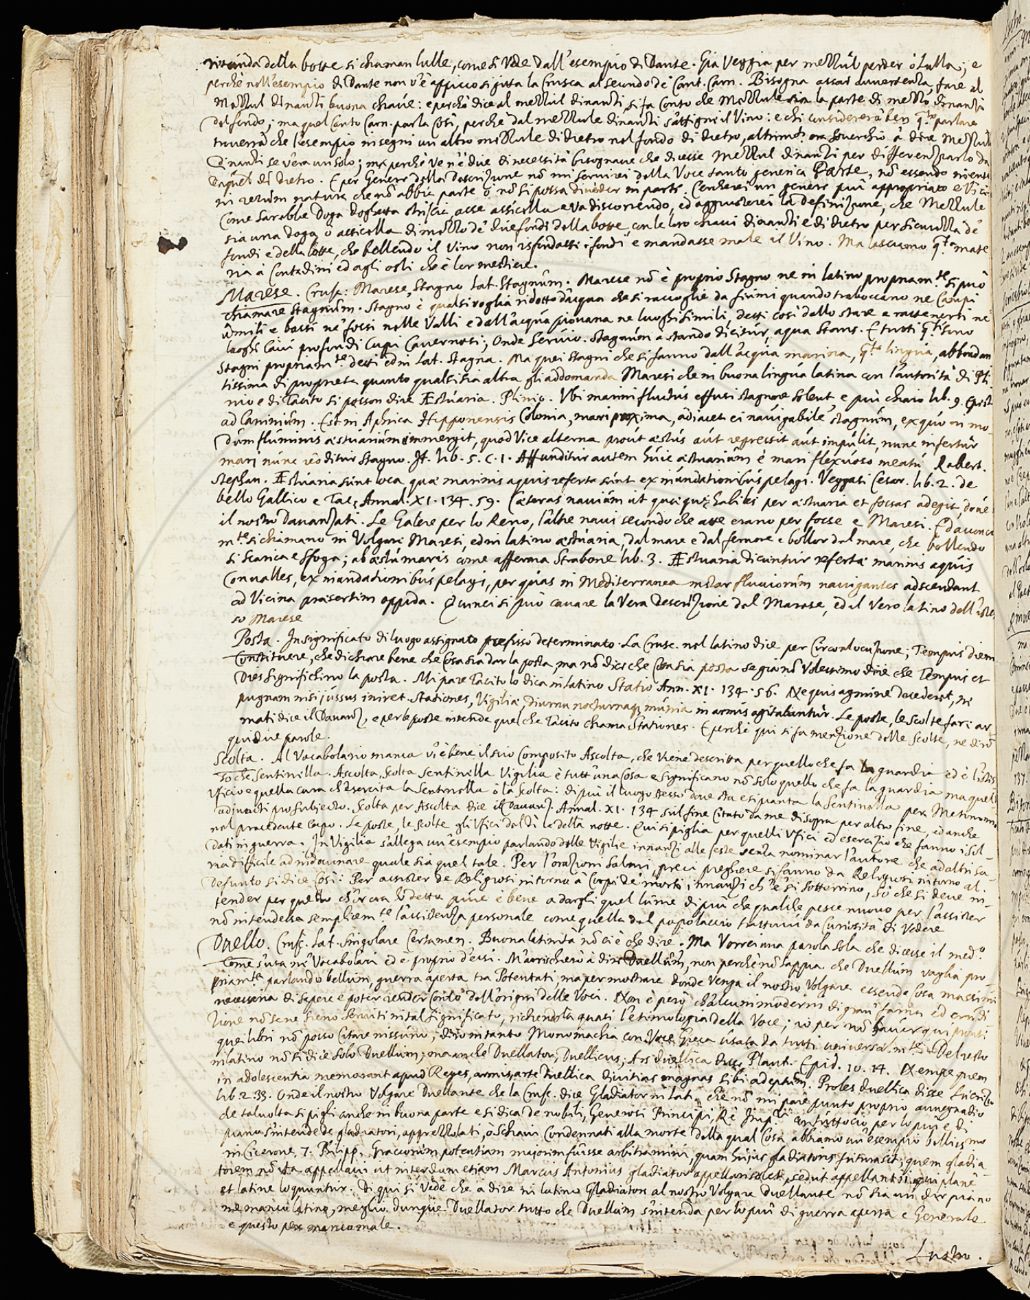 rotonda della botte si chiaman lulle, come si vede dall'esempio di Dante. Già Veggia per mezzùl perder o Lulla; e
perchè nell'esempio di Dante non v'è appicco si gitta la Crusca al secondo de Cant. Carn. Bisogna assai avvertenza, fare al
Mezzul dinanti buona chiave: e perchè dice al mezzul dinanti si fa conto che Mezzule sia la parte di mezzo dinanzi
del fondo; ma quel Canto Carn. parla così, perchè dal mezzule dinanti s'attigni il Vino: e chi considererà ben qto parlare
troverrà che l'esempio insegni un altro mezzule di dietro nel fondo di dietro, altrimti era souerchio a dire Mezzul
Dinanti se v'era un solo; ma perchè ve n'è due di necessità bisognaue che dicesse Mezzul dinanzi per differenziarlo da
quel di dietro. E per Genere della descrizione non mi servirei della Voce tanto generica Parte, nō essendo niente
in rerum natura che nō abbia parte o nō si possa dividere in parti. Cercherei un genere più appropriato e Vicino
Come sarebbe doga doghetta striscia asse assicella e va discorrendo, ed aggiusterei la definizione, che Mezzule
sia una doga o assicella di mezzo de' due fondi della botte, con le loro chiavi dinanti e di dietro per sicurezza de'
fondi e della botte, che bollendo il Vino non isfondasse i fondi e mandasse male il Vino. Ma lasciamo qta mate
ria a Contadini ed agli osti che è lor mestiere.
Marese. Crusc: Marese, Stagno Lat. Stagnum. Marese nō è proprio Stagno ne in latino propriamte si può
chiamare Stagnum. Stagno è qualsivoglia ridotto d'acqua che si raccoglie da fiumi quando traboccano ne Campi
umili e bassi ne' fossi nelle Valli e dall'acqua piovana ne luoghi simili detti così dallo stare e rattenersi ne
luoghi Cavi profondi Cupi Cavernosi; Onde Servio. Stagnum a stando dicitur, aqua stans. E tutti qti sono
Stagni propriamte detti ed in Lat. Stagna. Ma quei stagni che si fanno dall'acqua marina, qta lingua, abbondan
tissima di proprietà quanto qualsisia altra, gli addomanda Maresi che in buona lingua latina con l'autorità di Pli
nio e di Tacito si posson dire Æstuaria. Plinio. Ubi marini fluctus effusi stagnare solent, e più chiaro lib. 9. Epist
ad Caninium. Est in Aphrica Hipponensis Colonia, mari proxima, adiacet ei navigabile stagnum, ex quo in mo
dum fluminis æstuarium emergit, quod Vice alterna prout æstus aut repressit aut impulit, nunc infertur
mari nunc redditur stagno. It. lib. 5. C. 1. Affunditur autem huic æstuarium è mari flexuoso meatu. Robert.
Stephan. Æstuaria sunt loca quæ marinis aquis referta sunt ex inundationibus pelagi. Veggasi Cesar. lib. 2. de
bello Gallico e Tac. Annal. XI. 134. 59. Cæteras navium ut quæque habiles per æstuaria et fossas adegit, donde
il nostro Davanzati. Le Galere per lo Reno, l'altre navi secondo che atte erano per fosse e Maresi. E da
mte si chiamano in Volgare Maresi, ed in latino æstuaria, dal mare e dal fervere e bollor del mare, che bollendo
si scarica e sfoga; ab æstu maris come afferma Strabone lib. 3. Æstuaria dicuntur referta marinis aquis
Convalles, ex inundationibus pelagi, per quas in Mediterranea instar fluviorum navigantes adscendant
ad Vicina præsertim oppida. Quinci si può cavare la Vera descrizione del Marese, ed il Vero latino dell'
so Marese
Posta. In significato di luogo assignato prefisso determinato. La Crusc. nel latino dice per Circonlocuzione; Tempus diem
constituere, che dichiara bene che Cosa sia dar la posta, ma nō dice che Cosa sia posta se già nō Volessimo dire che Tempus et
Dies significhino la posta. Mi pare Tacito lo dica in latino Statio Ann. XI. 134. 56. Ne quis agmine decederet, ni
pugnam nisi jussus iniret. Stationes, Vigiliæ, diurna nocturnaq; munia in armis agitabantur. Le poste, le scolte fari ar
mati dice il Davanz., e per le poste intende quel che Tacito chiama Stationes. E perchè qui si fa menzione delle scolte, ne dirò
qui due parole.
Scolta. Al Vocabolario manca v'è bene il suo composto Ascolta, che viene descritta per quello che fa la guardia ed è l'istes
so che Sentinella. Ascolta, Scolta Sentinella Vigilia è tutt'una cosa e significano nō solo quello che fa la guardia ma quell'
Uficio e quella cura ch'esercita la Sentinella ò la Scolta: di più il luogo stesso ove sta e si pianta la Sentinella per Metinomia
adjuncti pro subjecto. Scolta per Ascolta dice il Davanz. Annal. XI. 134 sul fine citato da me di sopra per altro fine, ed anche
nel precedente Capo. Le poste, le scolte, gli Ufici del dì e della notte. Qui si piglia per quelli Ufici ed esercizio che fanno i sol-
dati in guerra. In Vigilia s'allega un esempio parlando delle Vigilie innanzi alle feste senza nominar l'autore che ad altri sa
ria difficile ad indovinare quale sia quel tale. Per l'orazioni Salmi, preci preghiere si fanno da Religiosi intorno al
Defunto si dice così: Per assister de Religiosi intorno à Corpi de' morti, innanzi che si sotterrino, sì che si deve in-
tender per questo ch'ora Vo' detto pure è bene a darghi quel lume di più che qualche pesce nuovo per l'assister
nō intendesse semplicemte l'assistenza personale come quella del popolaccio trattovi da Curiosità di Vedere
Duello. Crusc. Lat. Singolare Certamen. Buona latinità nō ci è che dire. Ma Vorrei una parola sola che dicesse il medo
come s'usa ne' Vocabolari ed è proprio d'essi. M'arrischierò a dire Duellum, non perchè nō sappia che Duellum vaglia pro
priamte parlando bellum, guerra aperta tra Potentati, ma per mostrare donde Venga il nostro Volgare essendo Cosa massima
necessaria di sapere e poter render conto dell'origini delle Voci. Non è però ch'alcuni moderni di gran fama ed erudi
zione nō se ne sieno serviti in tal significato, richiedendola quasi l'etimologia della Voce; io per nō haver qui pronti
que' libri nō posso citare nissuno; dirò intanto Monomachia con Voce Greca usata da tutti universalmte. Del resto
in latino nō si dice solo Duellum; ma anche Duellator, Duellicus, Ars duellica Plaut. Epid. 10. 14. Nempe quem
in adolescentia memorant apud Reges, armis, arte Duellica divitias magnas sibi adeptum. Proles duellica disse Lucrezio
lib. 2. 33. Onde il nostro Volgare Duellante che la Crusc. dice Gladiator in Lat. che nō mi pare punto proprio avvegnadio
che talvolta si pigli anche in buona parte e si dica de nobili, Generosi Principi, Re Impri, antutto per lo più e di
piana s'intende de' gladiatori, apprezzolati, o Schiavi condennati alla morte della qual Cosa abbiamo un esempio bellissimo
in Cicerone, 7. Philipp. Graccorum potentiam majorem fuisse arbitramini, quam hujus gladiatoris futura sit: quem gladia
torem nō ita appellavi ut interdum etiam Marcus Antonius gladiator appellari solet, sed ut appellant ii, qui plane
et latine loquuntur. Di qui si vede che a dire in latino Gladiatore al nostro Volgare Duellante nō sia un dir piano
ne manco latino, meglio dunque Duellator tutto che Duellum s'intenda per lo più di guerra aperta e Generale
e questo per manco male.
Lustro.